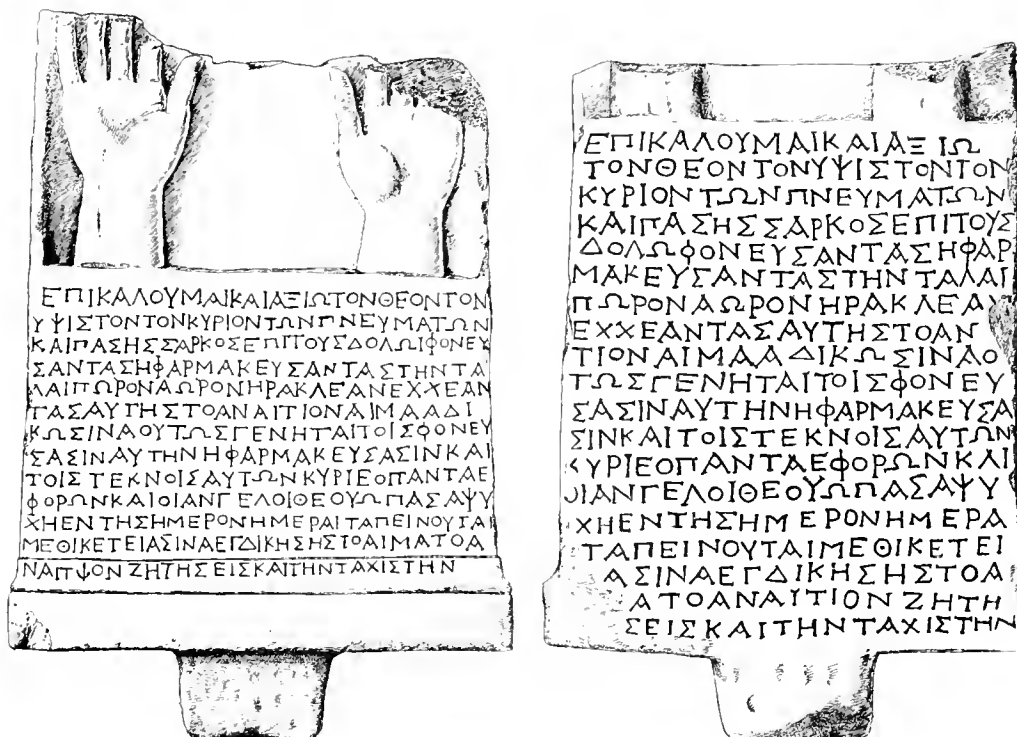 ΕΠΙΚΑΛΟΥΜΑΙΚΑΙΑΞΙΩΤΟΝΘΕΟΝΤΟΝ
ΥΨΙΣΤΟΝΤΟΝΚΥΡΙΟΝΤΩΝΠΝΕΥΜΑΤΩΝ
ΚΑΙΠΑΣΗΣΣΑΡΚΟΣΕΠΙΤΟΥΣΔΟΛΩΙΦΟΝΕΥ
ΣΑΝΤΑΣΗΦΑΡΜΑΚΕΥΣΑΝΤΑΣΤΗΝΤΑ
ΛΑΙΠΩΡΟΝΑΩΡΟΝΗΡΑΚΛΕΑΝΕΧΧΕΑΝ
ΤΑΣΑΥΤΗΣΤΟΑΝΑΙΤΙΟΝΑΙΜΑΑΔΙ
ΚΩΣΙΝΑΟΥΤΩΣΓΕΝΗΤΑΙΤΟΙΣΦΟΝΕΥ
ΣΑΣΙΝΑΥΤΗΝΗΦΑΡΜΑΚΕΥΣΑΣΙΝΚΑΙ
ΤΟΙΣΤΕΚΝΟΙΣΑΥΤΩΝΚΥΡΙΕΟΠΑΝΤΑΕ
ΦΟΡΩΝΚΑΙΟΙΑΝΓΕΛΟΙΘΕΟΥΩΠΑΣΑΨΥ
ΧΗΕΝΤΗΣΗΜΕΡΟΝΗΜΕΡΑΙΤΑΠΕΙΝΟΥΤΑΙ
ΜΕΘΙΚΕΤΕΙΑΣΙΝΑΕΓΔΙΚΗΣΗΣΤΟΑΙΜΑΤΟΑ
ΝΑΙΤΙΟΝΖΗΤΗΣΕΙΣΚΑΙΤΗΝΤΑΧΙΣΤΗΝ
ΕΠΙΚΑΛΟΥΜΑΙΚΑΙΑΞΙΩ
ΤΟΝΘΕΟΝΤΟΝΥΨΙΣΤΟΝΤΟΝ
ΚΥΡΙΟΝΤΩΝΠΝΕΥΜΑΤΩΝ
ΚΑΙΠΑΣΗΣΣΑΡΚΟΣΕΠΙΤΟΥΣ
ΔΟΛΩΦΟΝΕΥΣΑΝΤΑΣΗΦΑΡ
ΜΑΚΕΥΣΑΝΤΑΣΤΗΝΤΑΛΑΙ
ΠΩΡΟΝΑΩΡΟΝΗΡΑΚΛΕΑΝ
ΕΧΧΕΑΝΤΑΣΑΥΤΗΣΤΟΑΝ
ΤΙΟΝΑΙΜΑΑΔΙΚΩΣΙΝΑΟ
ΤΩΣΓΕΝΗΤΑΙΤΟΙΣΦΟΝΕΥ
ΣΑΣΙΝΑΥΤΗΝΗΦΑΡΜΑΚΕΥΣΑ
ΣΙΝΚΑΙΤΟΙΣΤΕΚΝΟΙΣΑΥΤΩΝ
ΚΥΡΙΕΟΠΑΝΤΑΕΦΟΡΩΝΚΑΙ
ΟΙΑΝΓΕΛΟΙΘΕΟΥΩΠΑΣΑΨΥ
ΧΗΕΝΤΗΣΗΜΕΡΟΝΗΜΕΡΑ
ΤΑΠΕΙΝΟΥΤΑΙΜΕΘΙΚΕΤΕΙ
ΑΣΙΝΑΕΓΔΙΚΗΣΗΣΤΟΑ
ΑΤΟΑΝΑΙΤΙΟΝΖΗΤΗ
ΣΕΙΣΚΑΙΤΗΝΤΑΧΙΣΤΗΝ